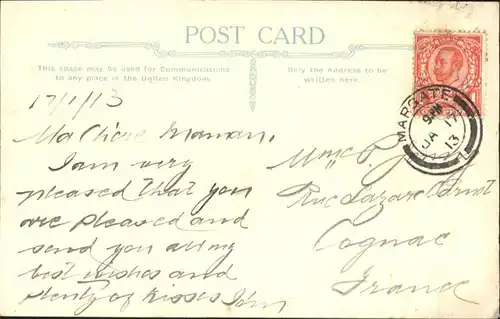 POST CARD
This space may be used for Communications
to any place in the United Kingdom.
Only the Address to be
written here.
MARGATE
JA 17
13
17/1/13
Ma Chère Maman.
I am very
pleased that you
are pleased and
send you all my
best wishes and
plenty of kisses
Rue Lazare
Cognac
France